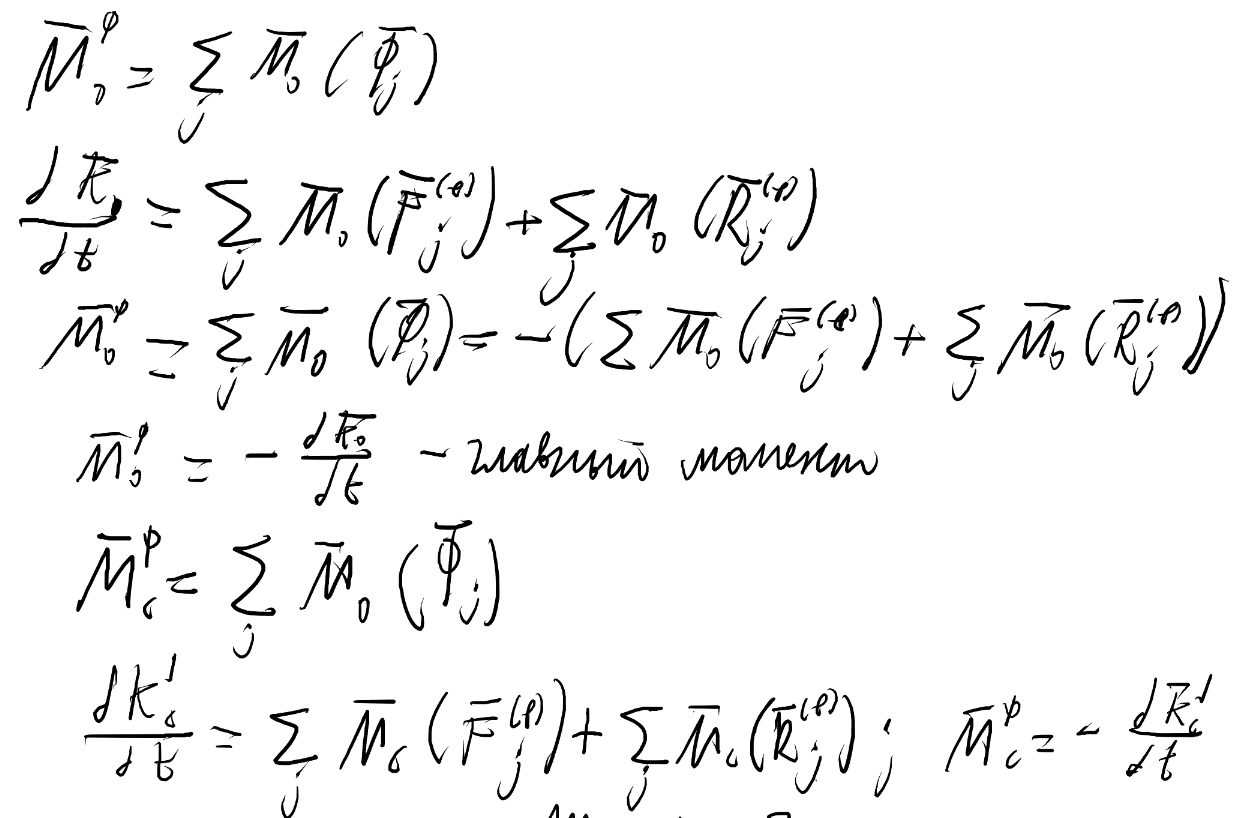 M̄₀^Φ = ∑_j M̄₀ (Φ̄_j)
dK̄₀/dt = ∑_j M̄₀ (F̄_j^(e)) + ∑_j M̄₀ (R̄_j^(e))
M̄₀^Φ = ∑_j M̄₀ (Φ̄_j) = -(∑ M̄₀ (F̄_j^(e)) + ∑_j M̄₀ (R̄_j^(e)))
M̄₀^Φ = - dK̄₀/dt - главный момент
M̄_c^Φ = ∑_j M̄₀ (Φ̄_j)
dK_c'/dt = ∑_j M̄_c (F̄_j^(e)) + ∑_j M̄_c (R̄_j^(e)) ; M̄_c^Φ = - dK̄_c'/dt